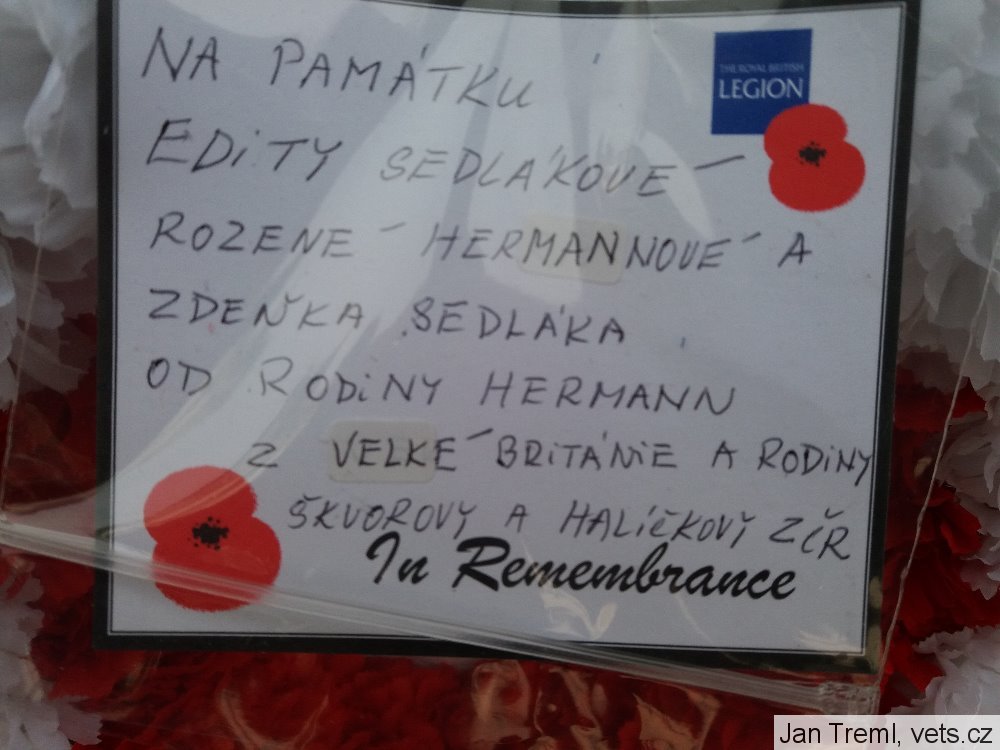 THE ROYAL BRITISH
LEGION
NA PAMÁTKU
EDiTY SEDLÁKOVÉ
ROZENÉ HERMANNOVÉ A
ZDEŇKA SEDLÁKA
OD RODiNY HERMANN
Z VELKÉ BRiTÁNiE A RODiNY
ŠKVOROVY A HALíČKOVY Z ČR
In Remembrance
Jan Treml, vets.cz